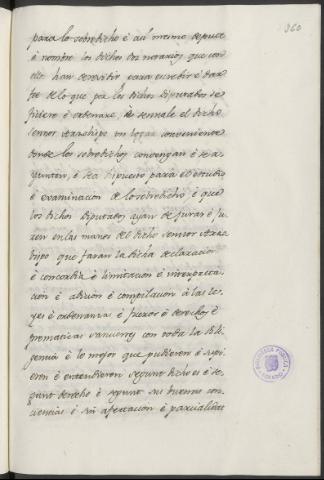 360
para lo sobredicho é asi mesmo depute
é nombre los dichos dos notarios que con
ellos han de residir para escrebir é dar
fee de lo que por los dichos Diputados se
ficiere é ordenare, é señale el dicho
señor Arzobispo un logar conveniente
donde los sobredichos convengan é se a-
yuntan, é sea dipueso para el estudio
é examinacion de lo sobredicho é que
los dichos Diputados ayan de jurar é ju-
ren en las manos del dicho señor Arzo-
bispo que faran la dicha declaracion
é concordia é limitacion é interpreta-
cion é adicion é compilacion á las le-
yes é ordenanzas é fueros é derechos é
prematicas sanciones con toda la dili-
gencia é lo mejor que pudieren é supi-
eren é entendieren segunt dicho es é se-
gunt derecho é segunt sus buenas con-
ciencias é sin afectacion é parcialidad